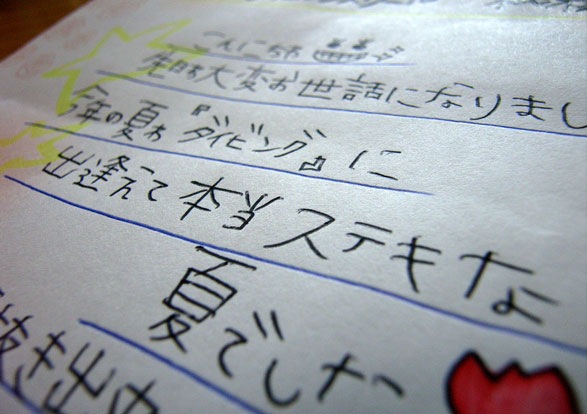 こんにちわ
先日わ大変お世話になりまし
今年の夏わ『ダイビング』に
出逢えて本当ステキな
夏でした
抜き出